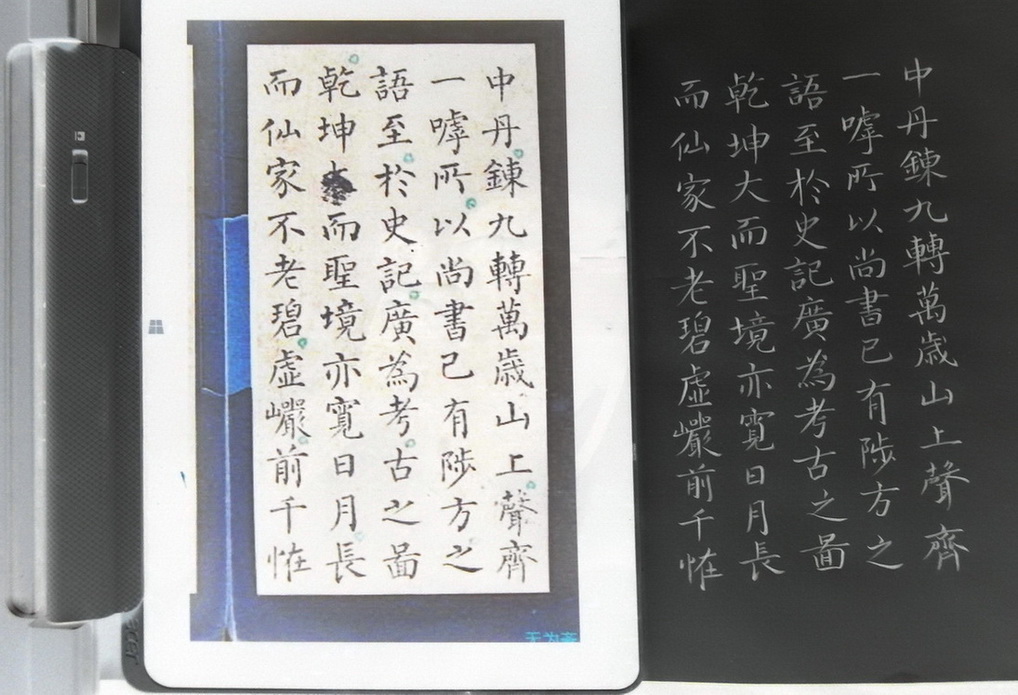 中丹鍊九轉萬歲山上聲齊
一嘑所以尚書已有陟方之
語至於史記廣為考古之啚
乾坤而聖境亦寬日月長
而仙家不老碧虛巗前千恠
中丹鍊九轉萬歲山上聲齊
一嘑所以尚書已有陟方之
語至於史記廣為考古之啚
乾坤大而聖境亦寬日月長
而仙家不老碧虛巗前千恠
天为斋